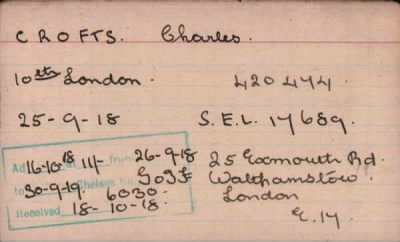 CROFTS. Charles.
10th London. 420474.
25-9-18 S.E.L. 17689.
Ad 16-10-18 14 from 26-9-18
to 30-9-19. Chelsea No. 6030.
Received 18-10-18.
25 Exmouth Rd.
Walthamstow.
London
E.17.